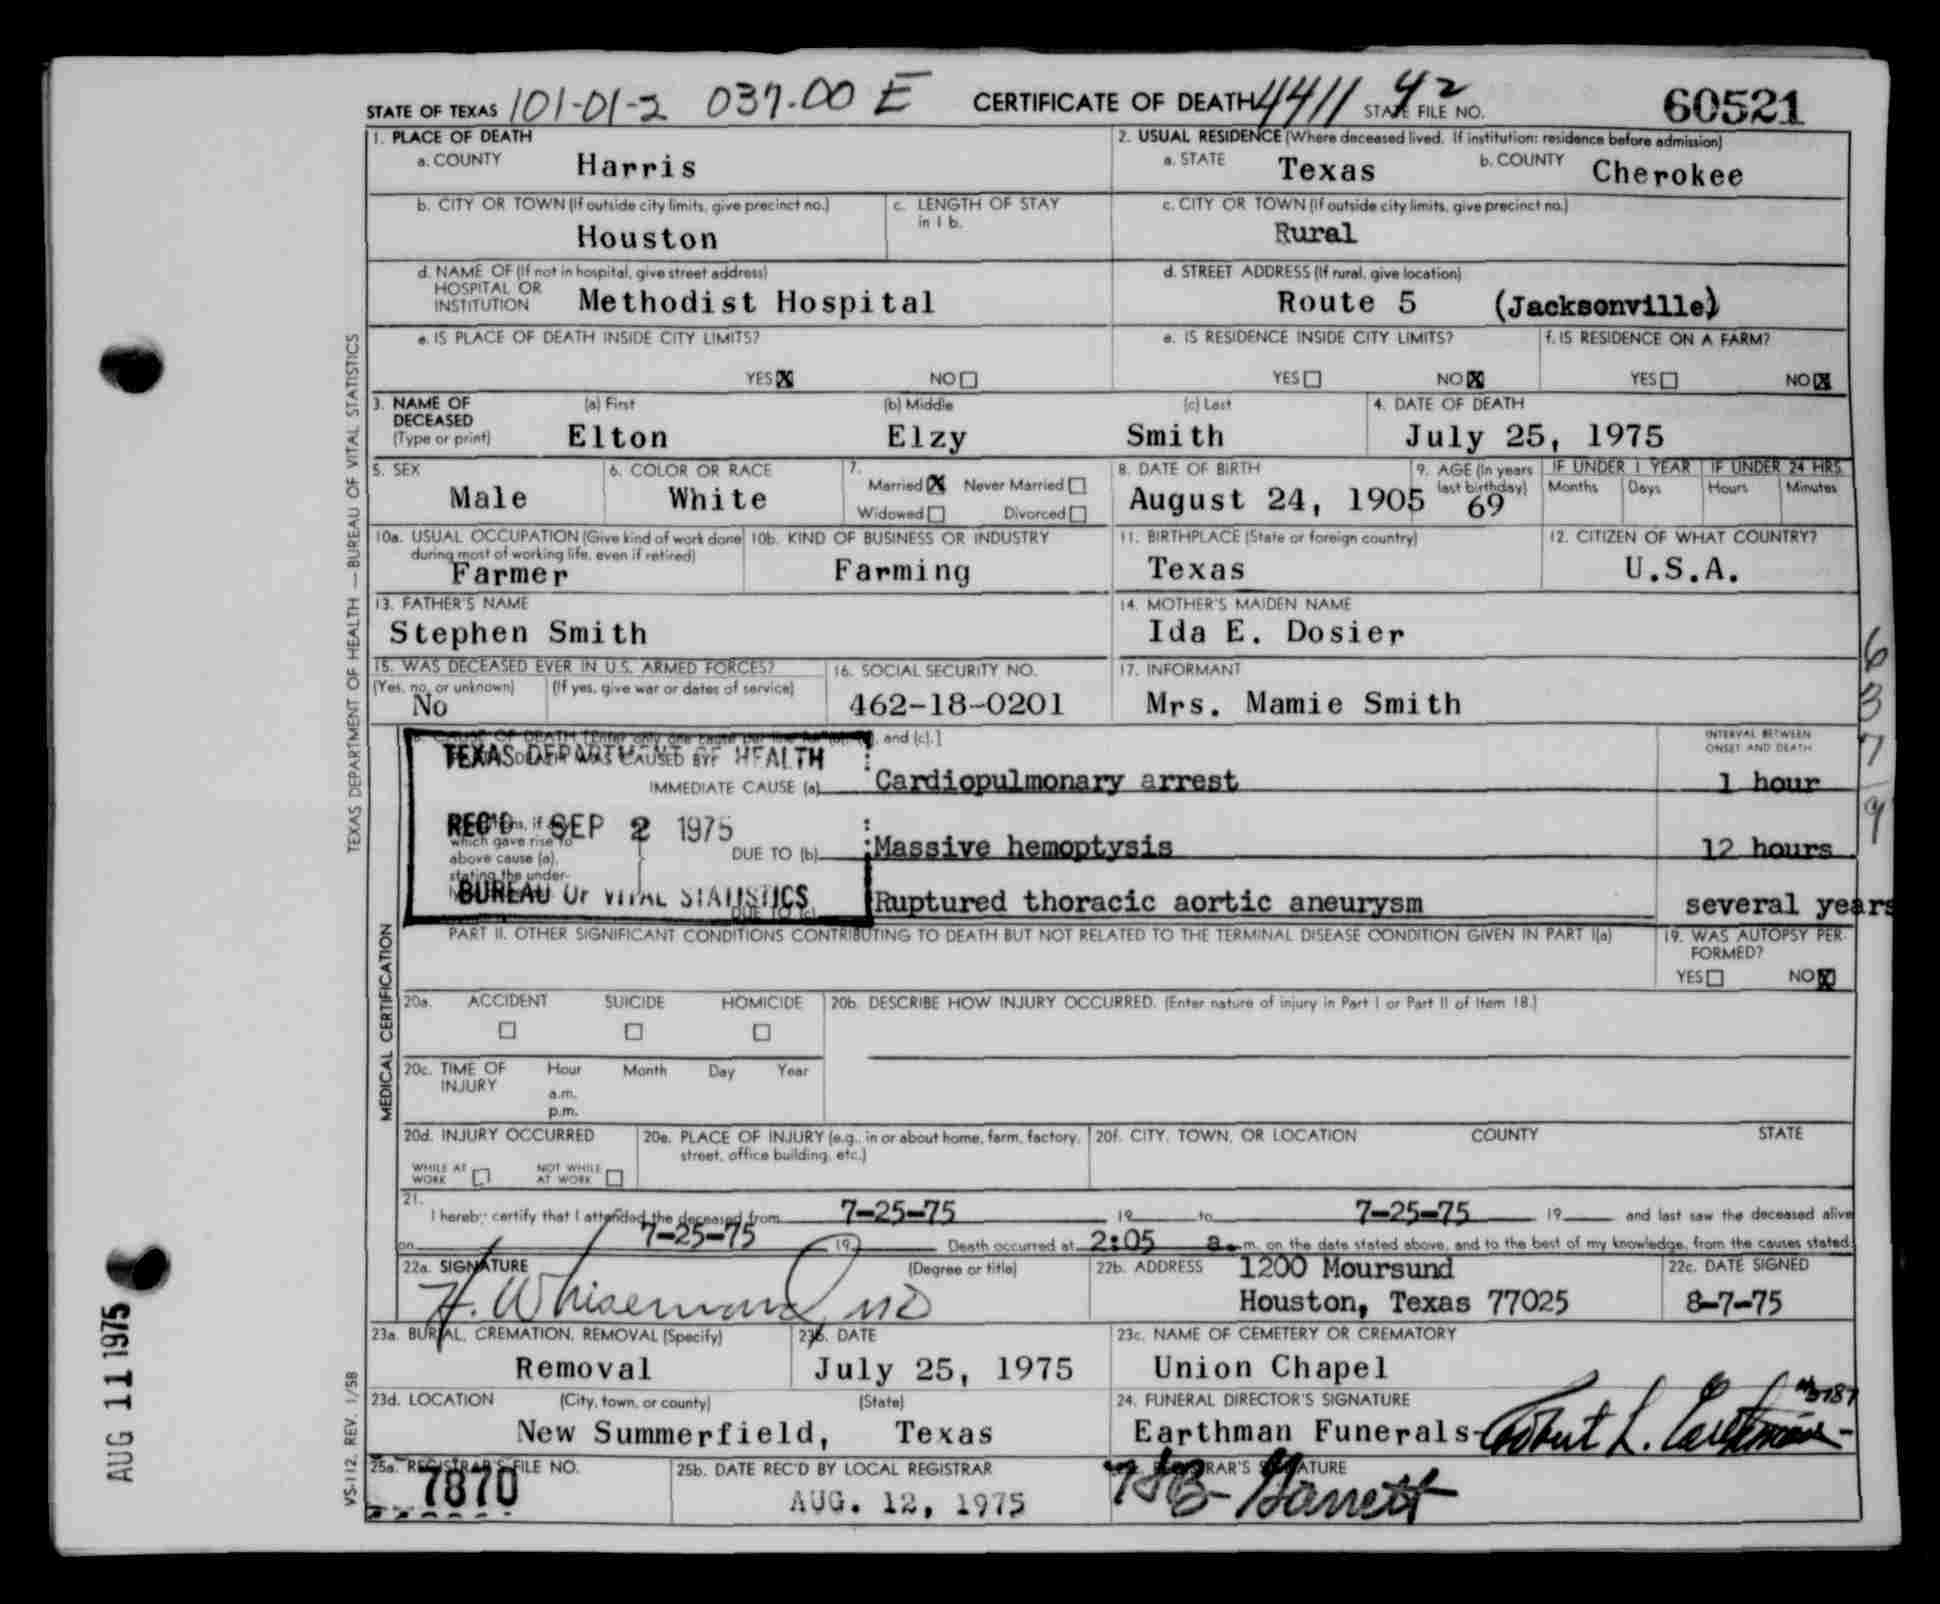 STATE OF TEXAS 101-01-2 037.00 E CERTIFICATE OF DEATH 4411 42 STATE FILE NO. 60521
1. PLACE OF DEATH
a. COUNTY Harris
2. USUAL RESIDENCE (Where deceased lived. If institution: residence before admission)
a. STATE Texas b. COUNTY Cherokee
b. CITY OR TOWN (If outside city limits, give precinct no.) Houston
c. LENGTH OF STAY in 1 b.
c. CITY OR TOWN (If outside city limits, give precinct no.) Rural
d. NAME OF (If not in hospital, give street address)
HOSPITAL OR
INSTITUTION Methodist Hospital
d. STREET ADDRESS (If rural, give location)
Route 5 (Jacksonville)
e. IS PLACE OF DEATH INSIDE CITY LIMITS?
YES X NO
e. IS RESIDENCE INSIDE CITY LIMITS?
YES NO X
f. IS RESIDENCE ON A FARM?
YES NO X
3. NAME OF DECEASED (Type or print)
(a) First Elton
(b) Middle Elzy
(c) Last Smith
4. DATE OF DEATH
July 25, 1975
5. SEX Male
6. COLOR OR RACE White
7. Married X Never Married
Widowed Divorced
8. DATE OF BIRTH August 24, 1905
9. AGE (In years last birthday) 69
IF UNDER 1 YEAR Months Days
IF UNDER 24 HRS. Hours Minutes
10a. USUAL OCCUPATION (Give kind of work done during most of working life, even if retired)
Farmer
10b. KIND OF BUSINESS OR INDUSTRY
Farming
11. BIRTHPLACE (State or foreign country)
Texas
12. CITIZEN OF WHAT COUNTRY?
U.S.A.
13. FATHER'S NAME
Stephen Smith
14. MOTHER'S MAIDEN NAME
Ida E. Dosier
15. WAS DECEASED EVER IN U.S. ARMED FORCES?
(Yes, no, or unknown) No
(If yes, give war or dates of service)
16. SOCIAL SECURITY NO.
462-18-0201
17. INFORMANT
Mrs. Mamie Smith
CAUSE OF DEATH [Enter only one cause per line for (a), (b), and (c).]
INTERVAL BETWEEN ONSET AND DEATH
TEXAS DEPARTMENT OF HEALTH
DEATH WAS CAUSED BY:
IMMEDIATE CAUSE (a) Cardiopulmonary arrest 1 hour
REC'D SEP 2 1975
which gave rise to
above cause (a),
stating the under-
DUE TO (b) Massive hemoptysis 12 hours
BUREAU OF VITAL STATISTICS
DUE TO (c) Ruptured thoracic aortic aneurysm several years
PART II. OTHER SIGNIFICANT CONDITIONS CONTRIBUTING TO DEATH BUT NOT RELATED TO THE TERMINAL DISEASE CONDITION GIVEN IN PART I(a)
19. WAS AUTOPSY PERFORMED?
YES NO X
20a. ACCIDENT SUICIDE HOMICIDE
20b. DESCRIBE HOW INJURY OCCURRED. (Enter nature of injury in Part I or Part II of Item 18.)
20c. TIME OF INJURY
Hour Month Day Year
a.m.
p.m.
20d. INJURY OCCURRED
WHILE AT WORK NOT WHILE AT WORK
20e. PLACE OF INJURY (e.g., in or about home, farm, factory, street, office building, etc.)
20f. CITY, TOWN, OR LOCATION COUNTY STATE
21.
I hereby certify that I attended the deceased from 7-25-75 19 to 7-25-75 19 and last saw the deceased alive
on 7-25-75 19 Death occurred at 2:05 a.m. on the date stated above, and to the best of my knowledge, from the causes stated.
22a. SIGNATURE (Degree or title)
H. Whisennand MD
22b. ADDRESS 1200 Moursund
Houston, Texas 77025
22c. DATE SIGNED
8-7-75
23a. BURIAL, CREMATION, REMOVAL (Specify)
Removal
23b. DATE
July 25, 1975
23c. NAME OF CEMETERY OR CREMATORY
Union Chapel
23d. LOCATION (City, town, or county) (State)
New Summerfield, Texas
24. FUNERAL DIRECTOR'S SIGNATURE
Earthman Funerals- Robert L. Earthman
25a. REGISTRAR'S FILE NO.
7870
25b. DATE REC'D BY LOCAL REGISTRAR
AUG. 12, 1975
REGISTRAR'S SIGNATURE
Garrett
TEXAS DEPARTMENT OF HEALTH — BUREAU OF VITAL STATISTICS
MEDICAL CERTIFICATION
VS-112, REV. 1/58
AUG 11 1975
6
3
7
9